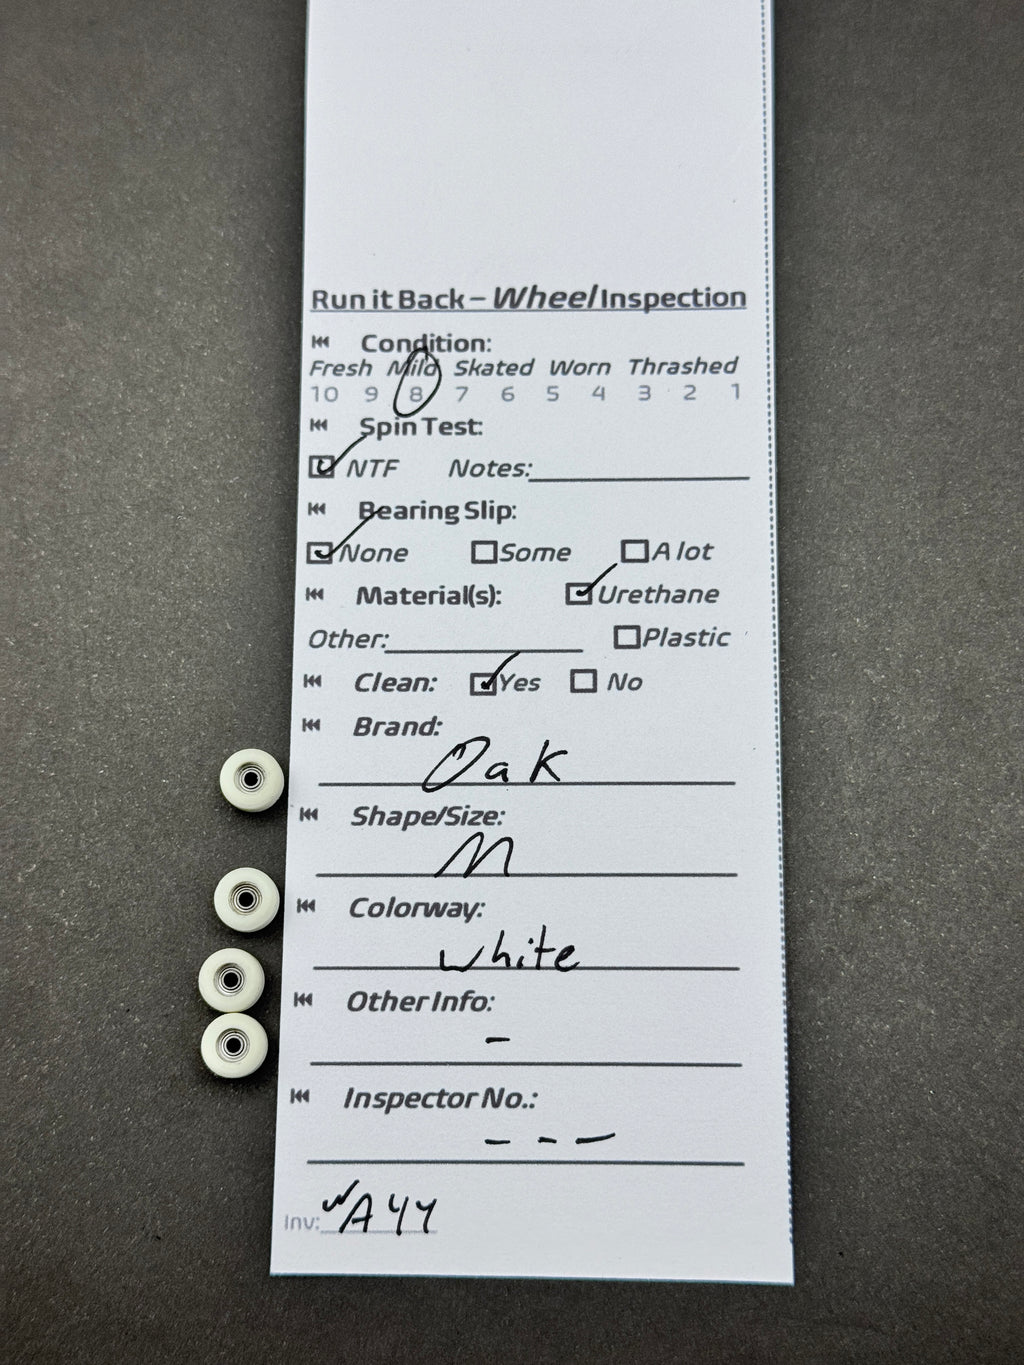 Run it Back – Wheel Inspection
Condition:
Fresh Mild Skated Worn Thrashed
10 9 8 7 6 5 4 3 2 1
Spin Test:
NTF Notes:
Bearing Slip:
None Some A lot
Material(s): Urethane
Other: Plastic
Clean: Yes No
Brand:
Oak
Shape/Size:
M
Colorway:
white
Other Info:
-
Inspector No.:
- - -
Inv: WA44